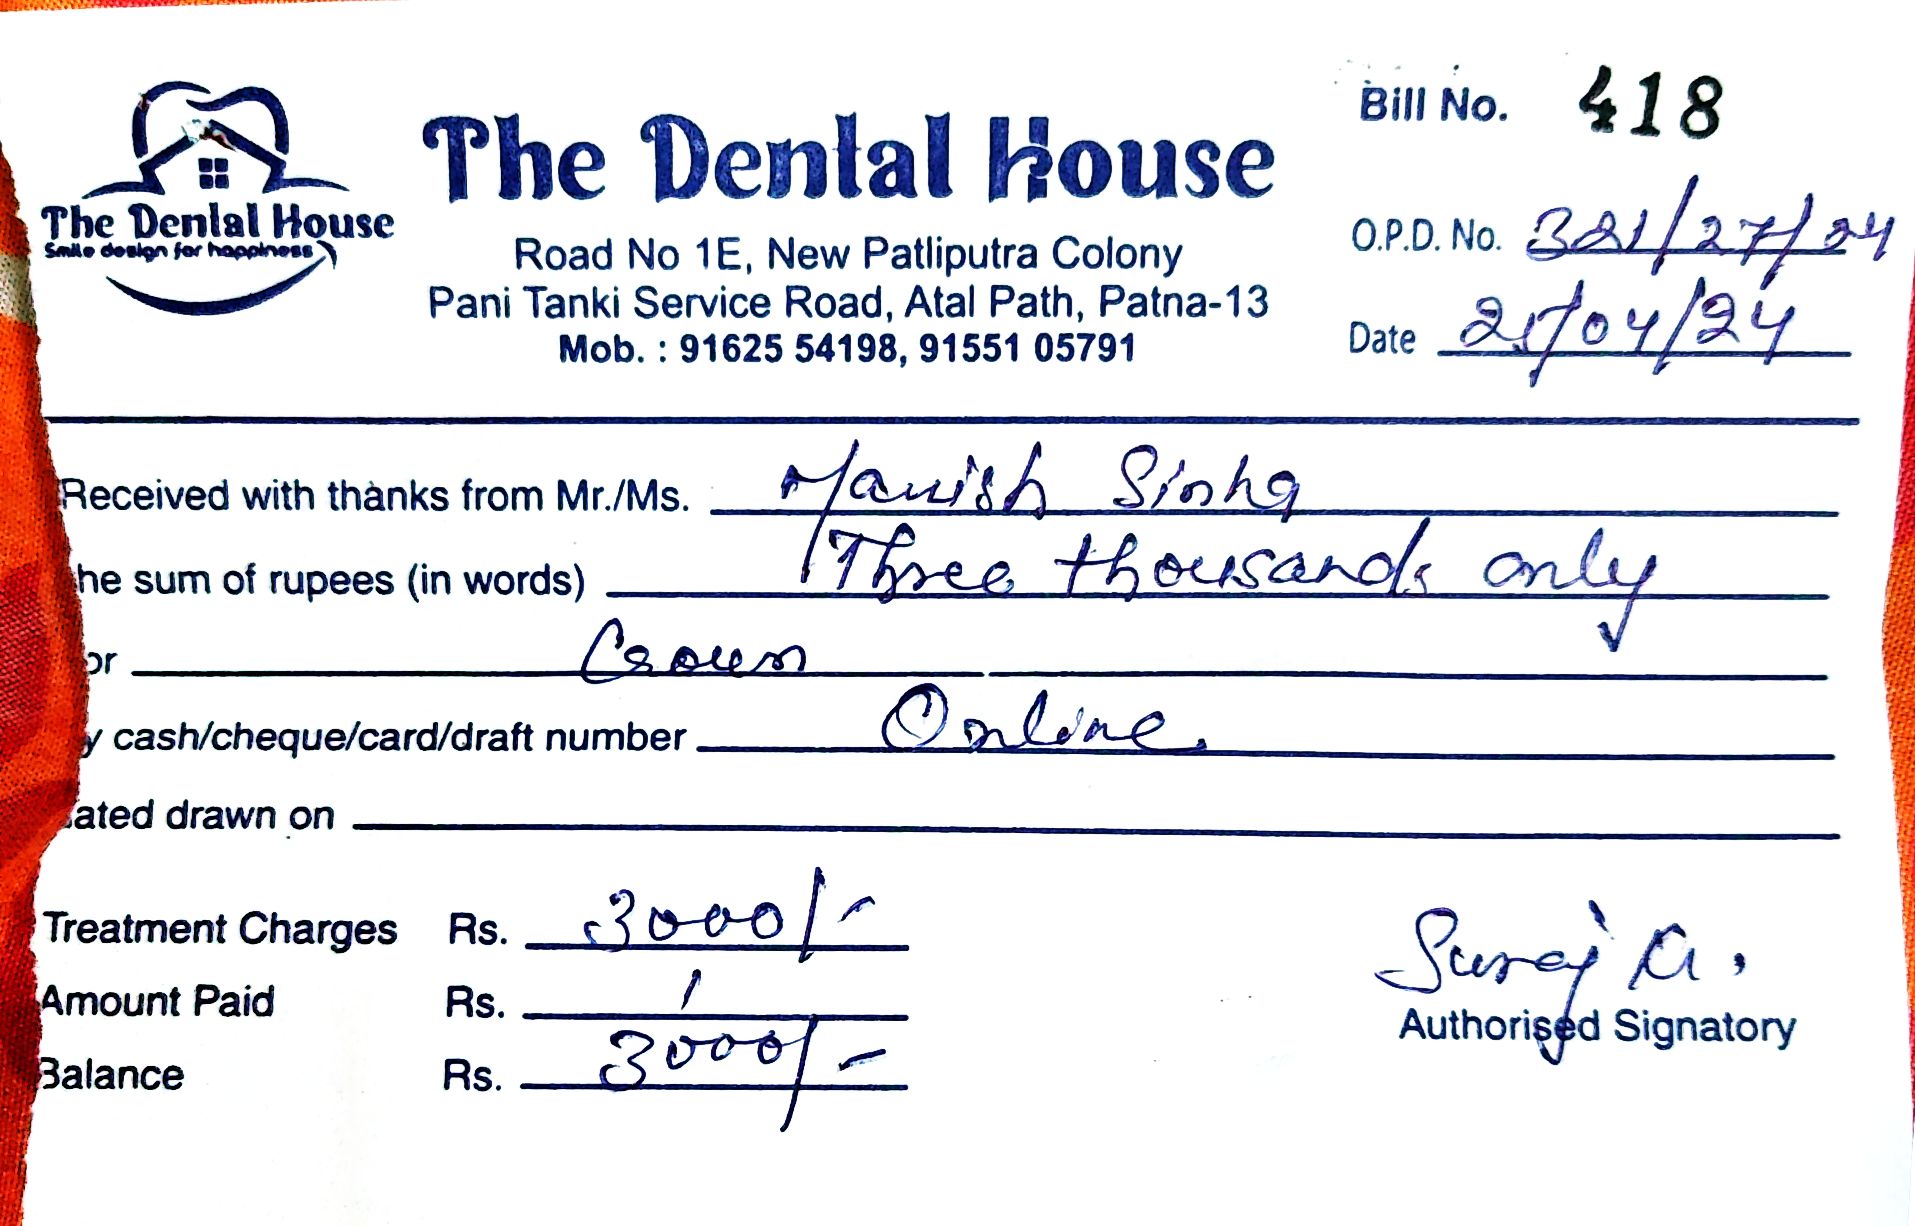 The Dental House
Smile design for happiness
The Dental House
Road No 1E, New Patliputra Colony
Pani Tanki Service Road, Atal Path, Patna-13
Mob. : 91625 54198, 91551 05791
Bill No. 418
O.P.D. No. 321/27/04
Date 25/04/24
Received with thanks from Mr./Ms. Manish Sinha
he sum of rupees (in words) Three thousands only
or Crown
y cash/cheque/card/draft number Online
ated drawn on
Treatment Charges Rs. 3000/-
Amount Paid Rs. /
Balance Rs. 3000/-
Suraj K.
Authorised Signatory